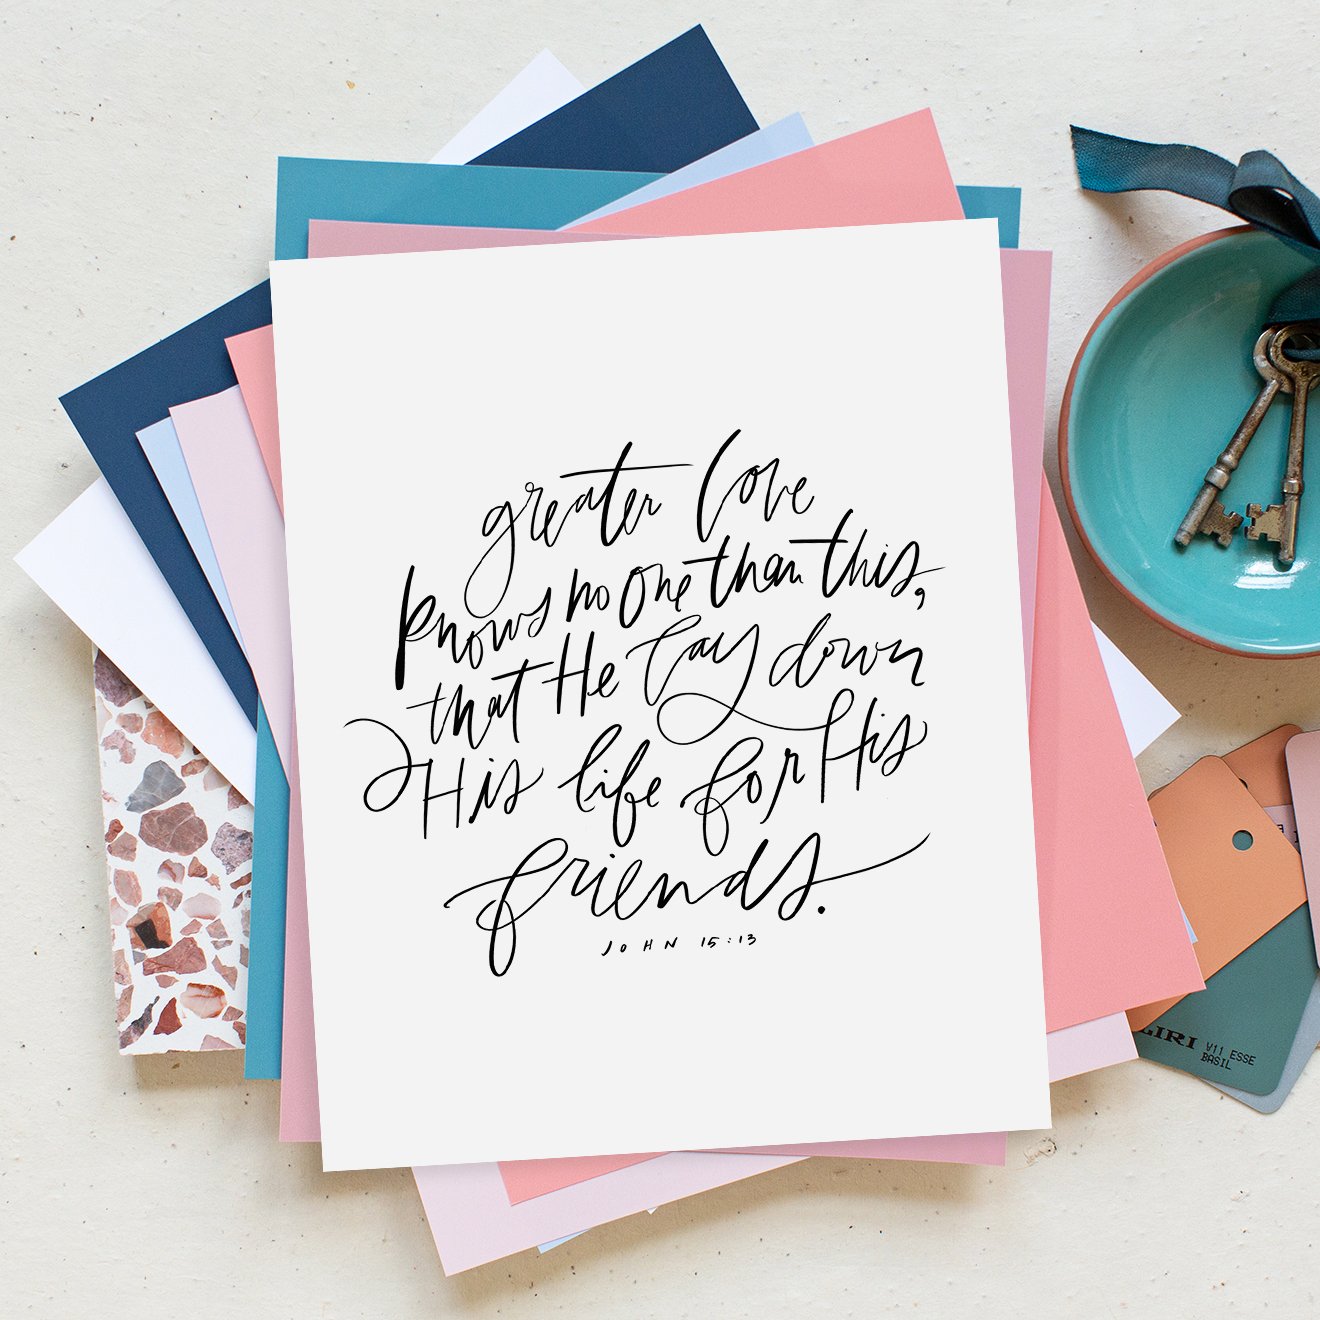 greater love
knows no one than this,
that He lay down
His life for His
friends.
JOHN 15:13
LIRI V11 ESSE
BASIL